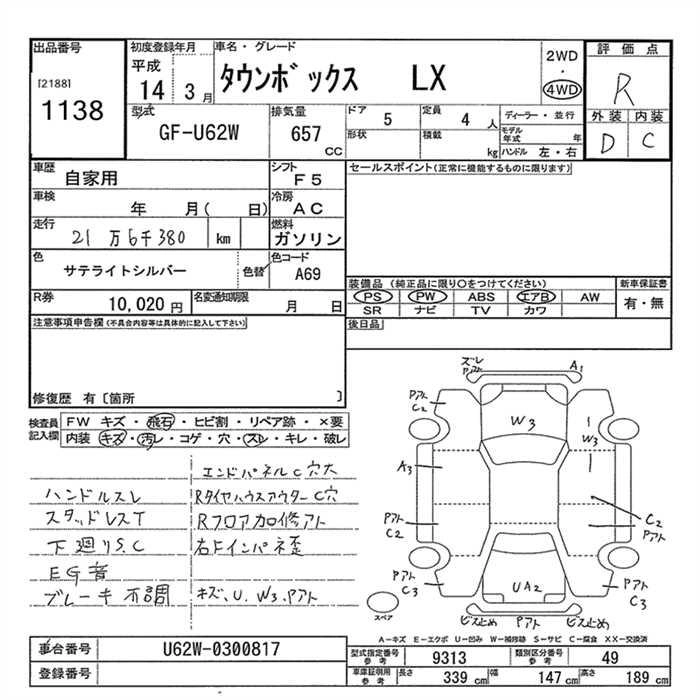 出品番号
[2188]
1138
初度登録年月
平成
14年 3月
車名・グレード
タウンボックス LX
2WD
・
4WD
評価点
R
外装 内装
D C
型式
GF-U62W
排気量
657
CC
ドア
5
形状
定員
4 人
積載
kg
ディーラー・並行
モデル年式 年
ハンドル 左・右
車歴
自家用
シフト
F5
車検
年 月( 日)
冷房
AC
走行
21万6千380 km
燃料
ガソリン
色
サテライトシルバー
色替
色コード
A69
R券
10,020 円
名変通知期限
月 日
セールスポイント(正常に機能するものに限ります)
装備品 (純正品に限り○をつけてください)
PS PW ABS エアB AW
SR ナビ TV カワ
新車保証書
有・無
後日品
注意事項申告欄(不具合内容等は具体的に記入して下さい)
修復歴 有〔箇所 〕
検査員記入欄
FW キズ・飛石・ヒビ割・リペア跡・×要
内装 キズ・汚レ・コゲ・穴・スレ・キレ・破レ
ハンドルスレ
スタッドレスT
下廻りS.C
EG音
ブレーキ不調
エンドパネルC穴大
RタイヤハウスアウターC穴
Rフロア加修アト
右Fインパネ歪
キズ、U.W3.Pアト
ズレ
Pアト
A1
Pアト
C2
W3
W3
A3
Pアト
C2
C2
Pアト
Pアト
C3
UA2
Pアト
C3
スペア
ビス止め Pアト ビス止め
A-キズ E-エクボ U-凹み W-補修跡 S-サビ C-腐食 XX-交換済
車台番号
U62W-0300817
登録番号
型式指定番号
参考
9313
類別区分番号
参考
49
車庫証明用
参考
長さ 339 cm
幅 147 cm
高さ 189 cm